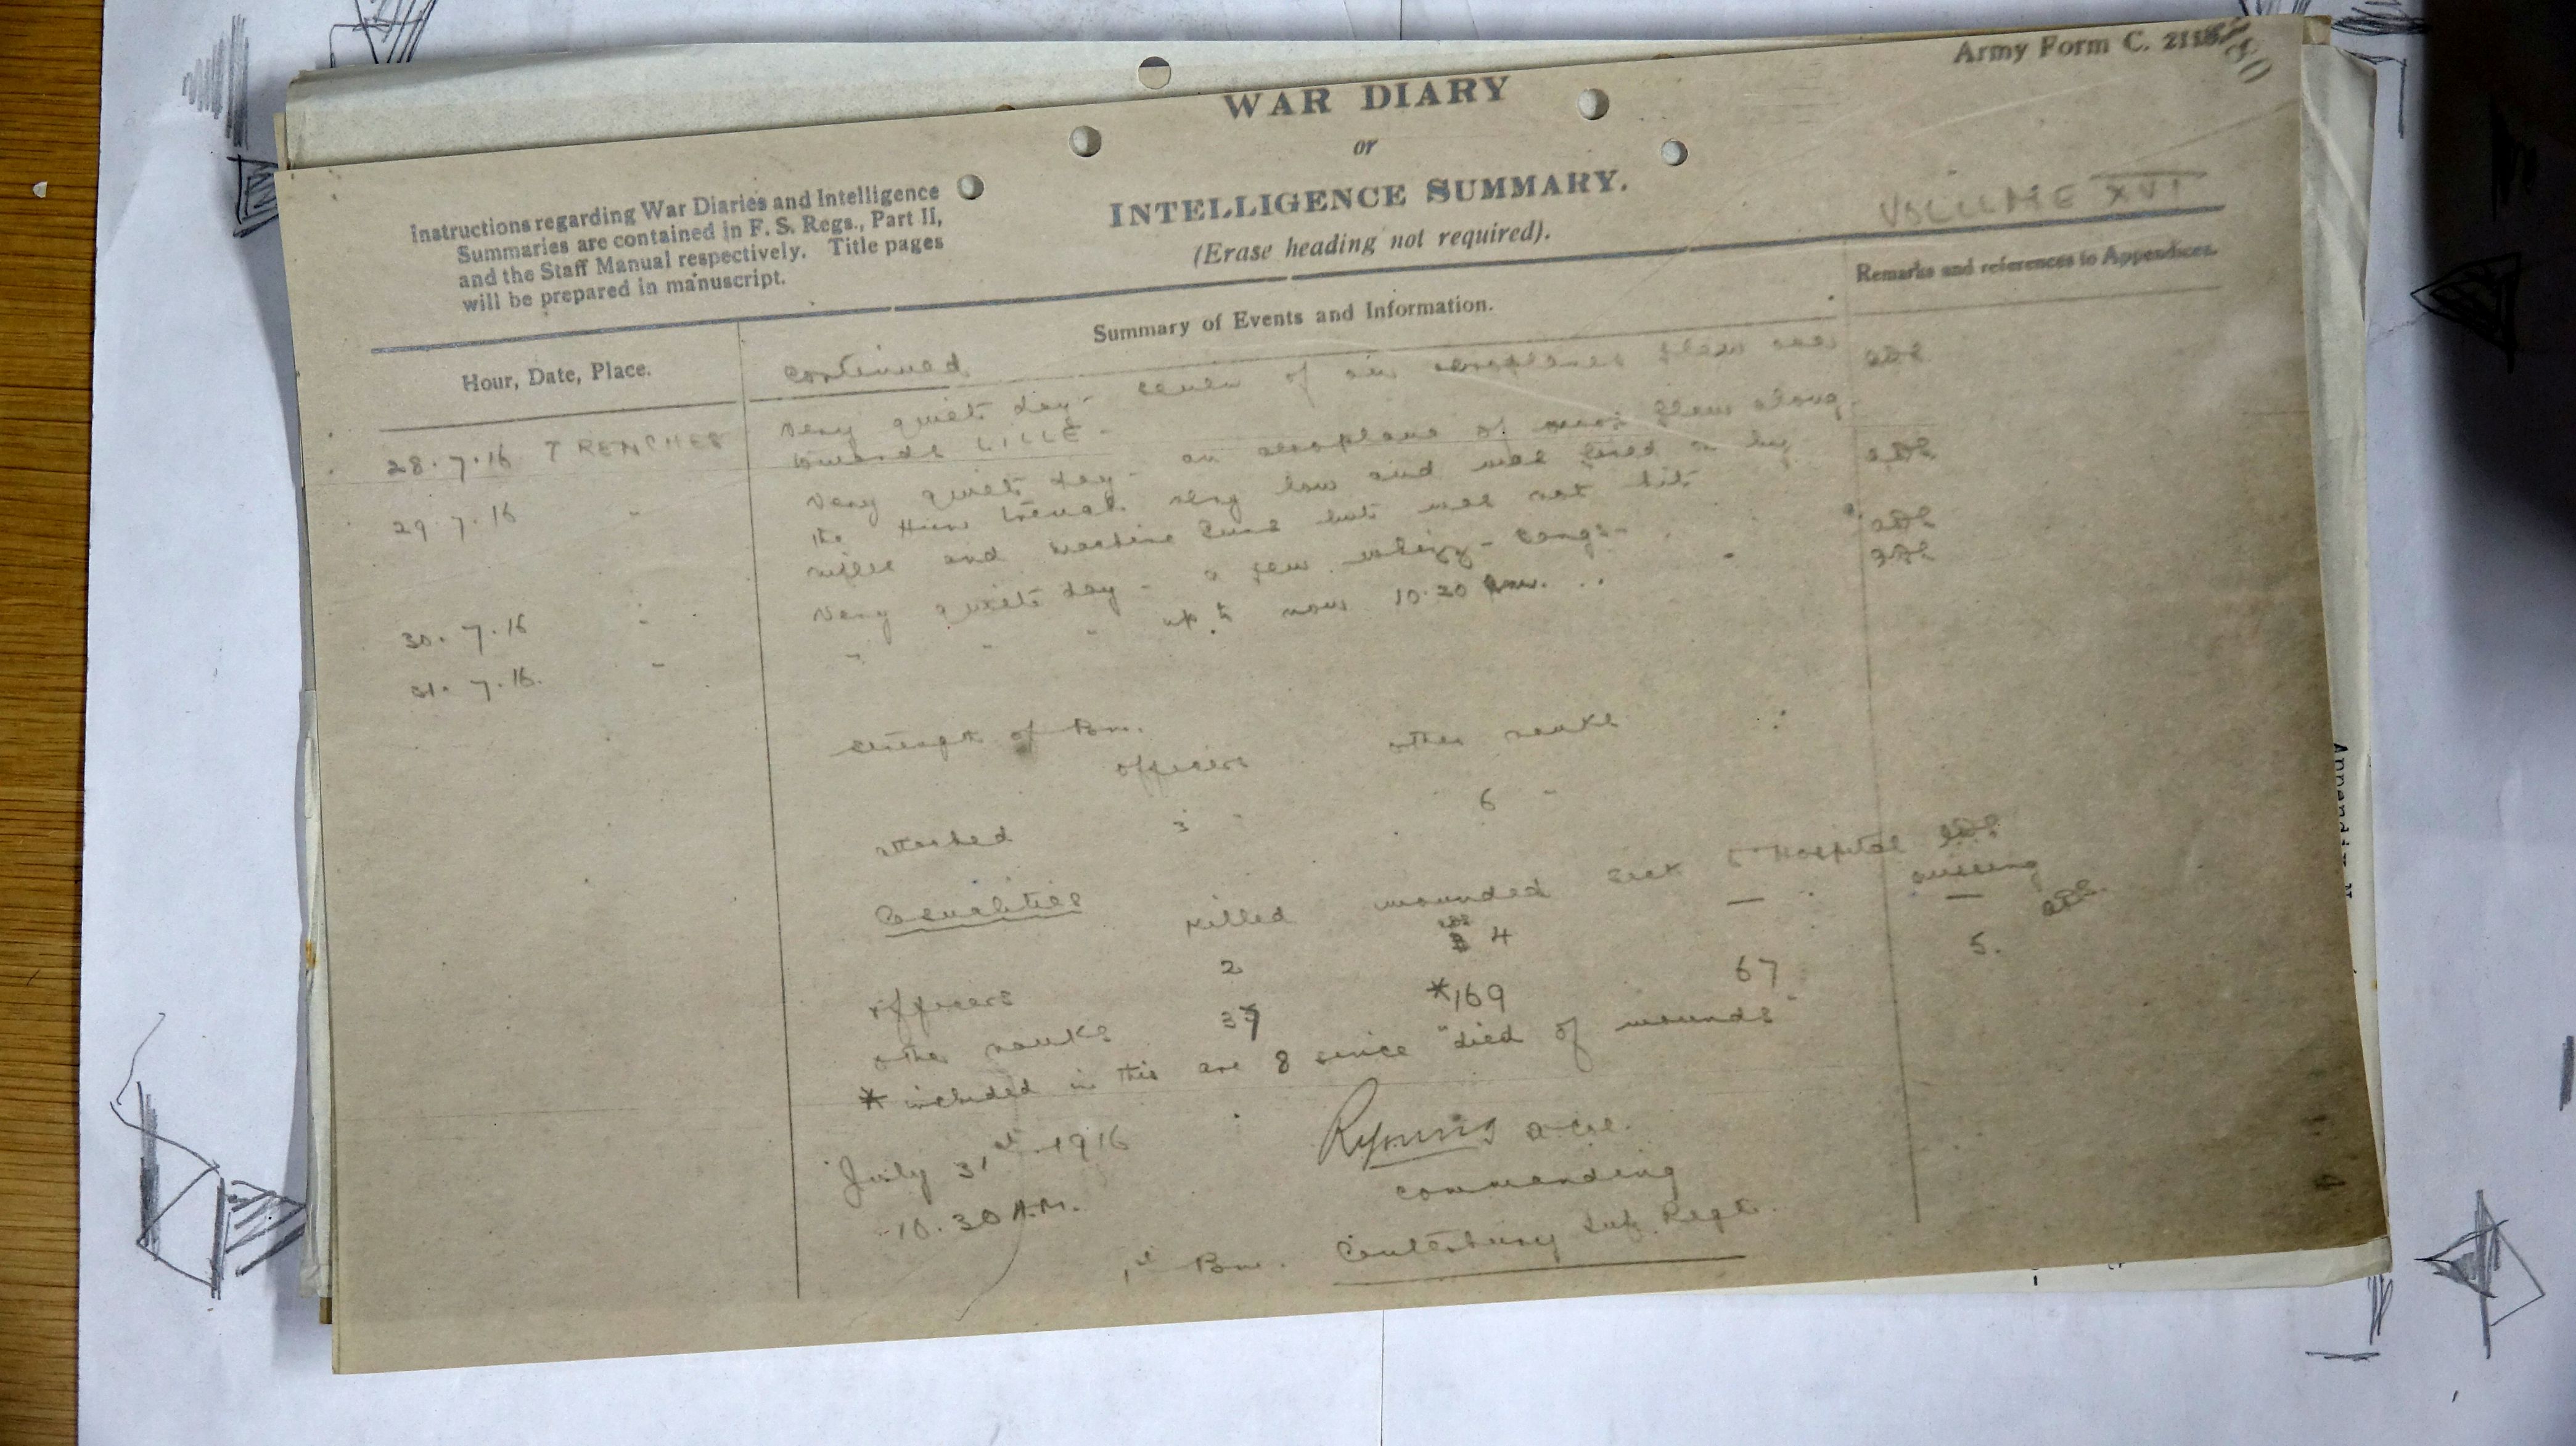 Army Form C. 2118
WAR DIARY
or
INTELLIGENCE SUMMARY.
(Erase heading not required).
Instructions regarding War Diaries and Intelligence
Summaries are contained in F. S. Regs., Part II,
and the Staff Manual respectively. Title pages
will be prepared in manuscript.
VOLUME XVI
Hour, Date, Place.
Summary of Events and Information.
Remarks and references to Appendices.
continued
28.7.16 TRENCHES Very quiet day - seven of our aeroplanes flew over
towards LILLE -
29.7.16 " Very quiet day - an aeroplane of ours flew along
the Hun trench very low and was fired on by
rifles and machine guns but was not hit
30.7.16 " Very quiet day - a few whizz-bangs -
31.7.16. " " " " up to now 10.30 am.
Strength of Bn.
officers other ranks
attached 3 " 6 "
Casualities killed wounded sick to Hospital missing
officers 2 4 — —
other ranks 37 *169 67 5.
* included in this are 8 since "died of wounds"
July 31st 1916
10.30 A.M.
RYoung
commanding
1st Bn. Canterbury Inf. Regt.